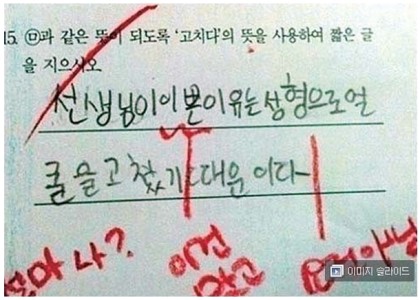 15. ㉤과 같은 뜻이 되도록 '고치다'의 뜻을 사용하여 짧은 글
을 지으시오
선생님이이쁜이유는성형으로얼
굴을고쳤기때문이다
이건
맞고
이미지 슬라이드